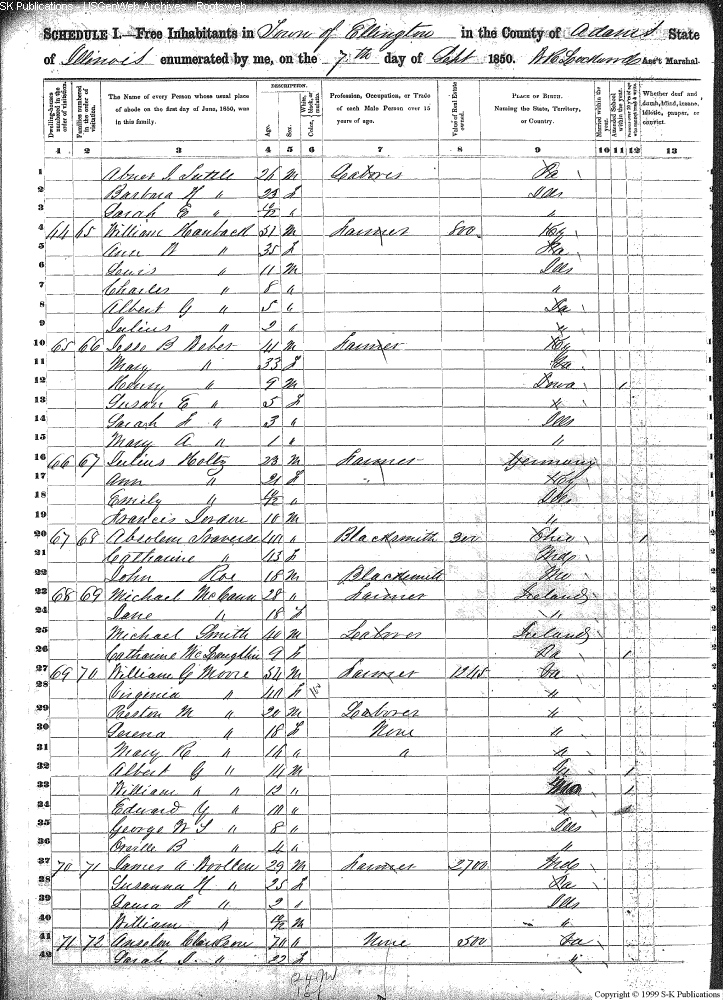 SK Publications - USGenWeb Archives - Rootsweb
SCHEDULE I.—Free Inhabitants in Town of Ellington in the County of Adams State
of Illinois enumerated by me, on the 7th day of Sept 1850. Ass't Marshal.
Dwelling-houses numbered in the order of visitation.
Families numbered in the order of visitation.
The Name of every Person whose usual place of abode on the first day of June, 1850, was in this family.
DESCRIPTION.
Age.
Sex.
Color, White, black, or mulatto.
Profession, Occupation, or Trade of each Male Person over 15 years of age.
Value of Real Estate owned.
PLACE OF BIRTH. Naming the State, Territory, or Country.
Married within the year.
Attended School within the year.
Whether deaf and dumb, blind, insane, idiotic, pauper, or convict.
1 2 3 4 5 6 7 8 9 10 11 12 13
1 Abner J. Tuttle 26 M Laborer Pa
2 Barbara H " 23 f Ills
3 Sarah E " "
4 64 65 William Hanback 51 M Farmer 800 Ky
5 Ann " 35 f Pa
6 Lewis " 11 M Ills
7 Charles " 8 " "
8 Albert G " 5 " Ia
9 Julius " 2 " "
10 65 66 Jesse B Weber 41 M Farmer Ky
11 Mary " 33 f
12 Henry " 9 M Iowa
13 Susan E " 5 f "
14 Sarah F " 3 " Ills
15 Mary A " 1 " "
16 66 67 Julius Holtz 23 M Farmer Germany
17 Ann " 21 f " Ky
18 Emily " " Ills
19 Francis Jordon 10 M "
20 67 68 Absolem Traverse " Blacksmith 300 Ohio
21 Catharine " 43 f
22 John Roe 18 M Blacksmith Mo
23 68 69 Michael McCann 28 " Farmer Ireland
24 Jane " 18 f "
25 Michael Smith 40 M Laborer Ireland
26 Catharine McLaughlin 9 f Pa
27 69 70 William G Moore 54 M Farmer 1245 Va
28 Virginia " 40 f "
29 Preston M " 20 M Laborer "
30 Serena " 18 f None "
31 Mary R " 16 " " "
32 Albert G " 14 M
33 William " 12 "
34 Edward Y " "
35 George W S " 8 " Ills
36 Orville B " 4 " "
37 70 71 James A Woollen 29 M Farmer 2700
38 Susanna H " 25 f Pa
39 Laura F " 2 " Ills
40 William " M "
41 71 72 70 " None 500 Va
42 Sarah " 22 f "
Copyright © 1999 S-K Publications